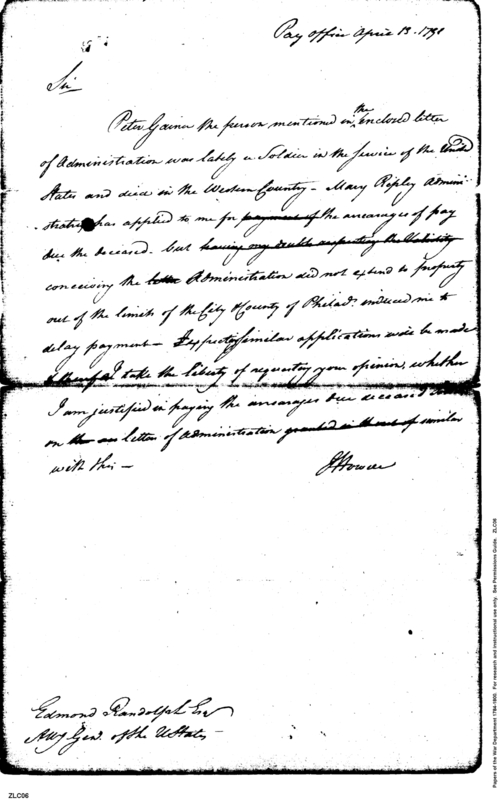 Pay office April 13. 1791
Sir
Peter Gainer the person mentioned in the enclosed letter
of Administration was lately a Soldier in the Service of the United
States and died in the Western Country – Mary Ripley Admini-
stratrix has applied to me for payment of the arrearages of pay
due the deceased. but having my doubts respecting the Validity
conceiving the letter Administration did not extend to property
out of the limits of the City & County of Philada. induced me to
delay payment – Expecting similar applications will be made
I take the liberty of requesting your opinion, whether
I am justified in paying the arrearages due deceased
on the letters of Administration granted in the similar
with this –
J Howell
Edmond Randolph Esq
Atty Genl. of the UStates
ZLC06
Papers of the War Department 1784-1800. For research and instructional use only. See Permissions Guide. ZLC06